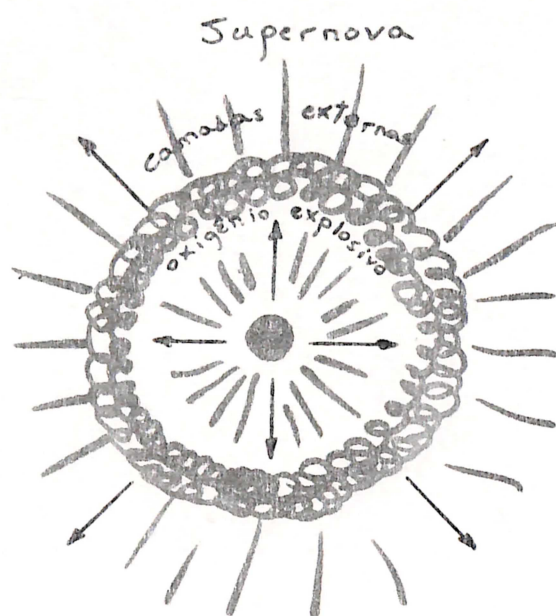 Supernova
camadas externas
oxigênio explosivo